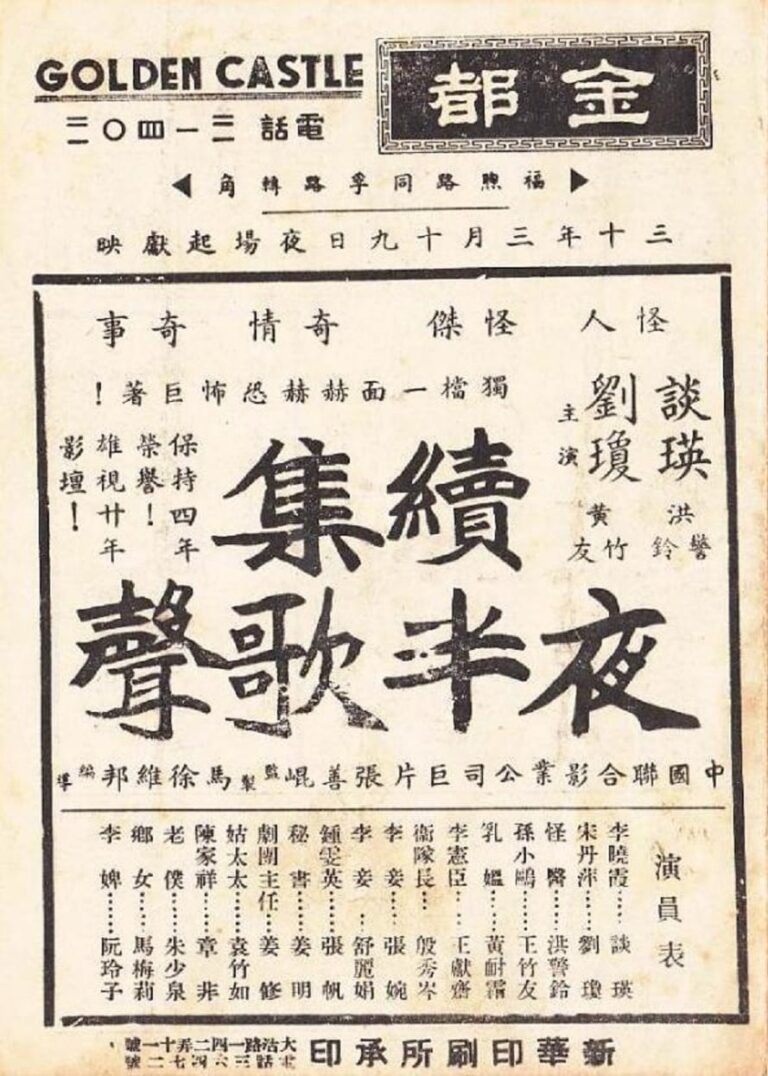 GOLDEN CASTLE
金都
電話 三一四〇三
福煦路同孚路轉角
三十年三月十九日夜場起獻映
怪人怪傑 奇情奇事
獨檔一面赫赫恐怖巨著!
談瑛
劉瓊
主演
洪警鈴
黃竹友
保持四年
榮譽!
雄視廿年
影壇!
續集
夜半歌聲
中國聯合影業公司巨片張善琨監製馬徐維邦編導
演員表
李曉霞……談瑛
宋丹萍……劉瓊
怪醫……洪警鈴
孫小鷗……王竹友
乳媼……黃耐霜
李憲臣……王獻齋
衛隊長……殷秀岑
李妾……張婉
李妾……舒麗娟
鍾雯英……張帆
秘書……姜明
劇團主任……姜修
姑太太……袁竹如
陳家祥……章非
老僕……朱少泉
鄉女……馬梅莉
李婢……阮玲子
新華印刷所承印
大沽路一四二弄十一號
電話三六四七二號